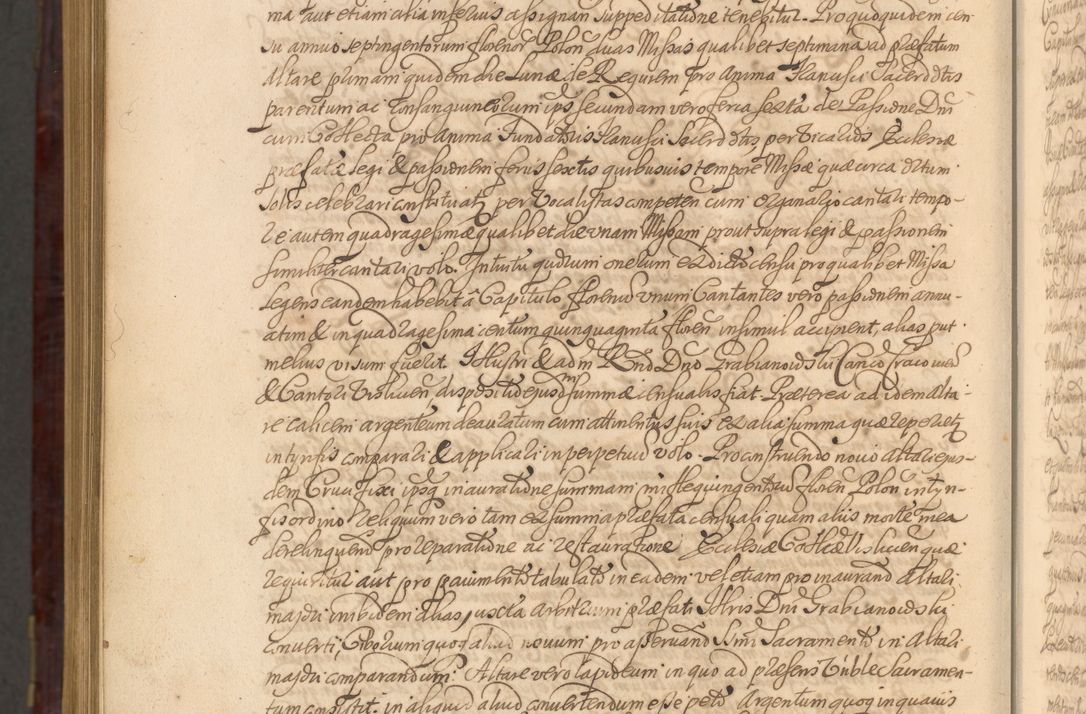 ma aut etiam alia inferius assignan suppeditatione tenebitur. Pro quo quidem cen
su annuo septingentorum florenor Polon duas Missas qualibet septimana ad præfatum
Altare primam quidem die Lunæ de Requiem pro anima Hanusii Sacerdotis
parentum ac consanguineorum ips secundam vero feria sexta de Passione Dni
cum Collecta pro anima Fundatoris Hanusii Sacerdotis per Vicarios Ecclesiæ
præfatæ legi & passionem ferijs sextis quibusuis tempore Missæ quæ circa
solis celebrari per Vocalistas competen cum organario cantari tempo-
re autem quadragesimæ qualibet die unam Missam prout supra legi & passionem
similiter cantari volo. Intuitu quorum onerum ex dicto censu pro qualibet Missa
legens eandem habebit â Capitulo florenum unum Cantantes vero passionem annu-
atim & in quadragesima centum quinquaginta floren insimul accipient, alias put
melius visum fuerit. Illustri & adm Rnd Dno Grabianowski Canco
& Cantori Vislicen dispositio ejusdm summæ censualis fiat. Præterea ad idem Alta-
re calicem argenteum deauratum cum attinentijs suis ex alia summa quæ reperietur
in tynfis comparari & applicari in perpetuum volo. Pro construendo novo Altari ejus-
dem Crucifixi ipsq inauratione summam mille quingentorum floren Polon in tyn-
fis ordino Reliquum vero tam ex summa præfata censuali quam aliis morte mea
derelinquen pro reparatione ac restauratione Ecclesiæ Collæ Vislicen quæ
requiritur aut pro pavimento tabulato in eadem vel etiam pro inaurand Altari
majori inibidem alias juxta arbitrium præfati Illris Dni Grabianowski
converti, Ciborium quoq aliud novum pro asservand Smi Sacramenti in Altari
majori comparandum. Altare vero lapideum in quo ad præsens Vnble Sacramen-
tum consistit, in aliquod aliud convertendum esse peto Argentum quoq in quavis